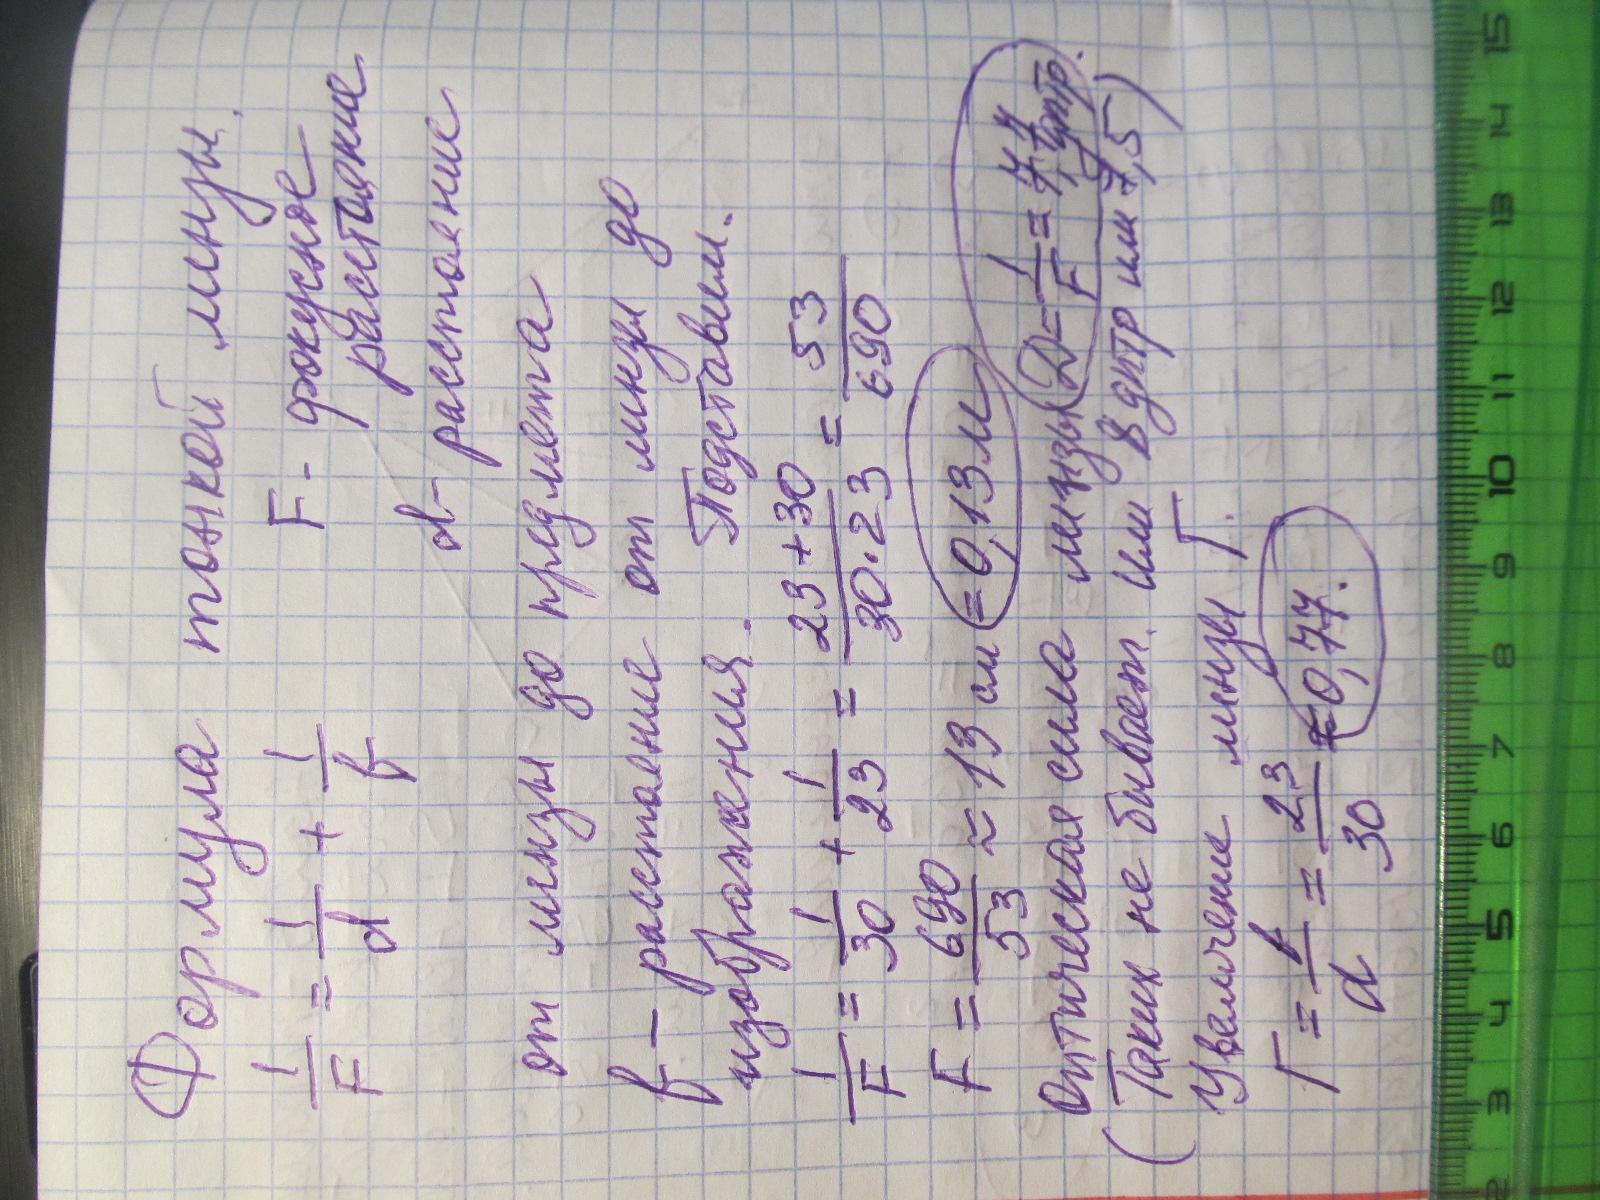 Формула тонкой линзы.
1/F = 1/d + 1/f F - фокусное
расстояние
d - расстояние
от линзы до предмета
f - расстояние от линзы до
изображения. Подставим.
1/F = 1/30 + 1/23 = 23+30/30·23 = 53/690
F = 690/53 ≈ 13 см = 0,13м
Оптическая сила линзы D = 1/F = 7,7 дптр.
(Таких не бывает. Или 8 дптр или 7,5)
Увеличение линзы Г.
Г = f/d = 23/30 = 0,77.
2 3 4 5 6 7 8 9 10 11 12 13 14 15